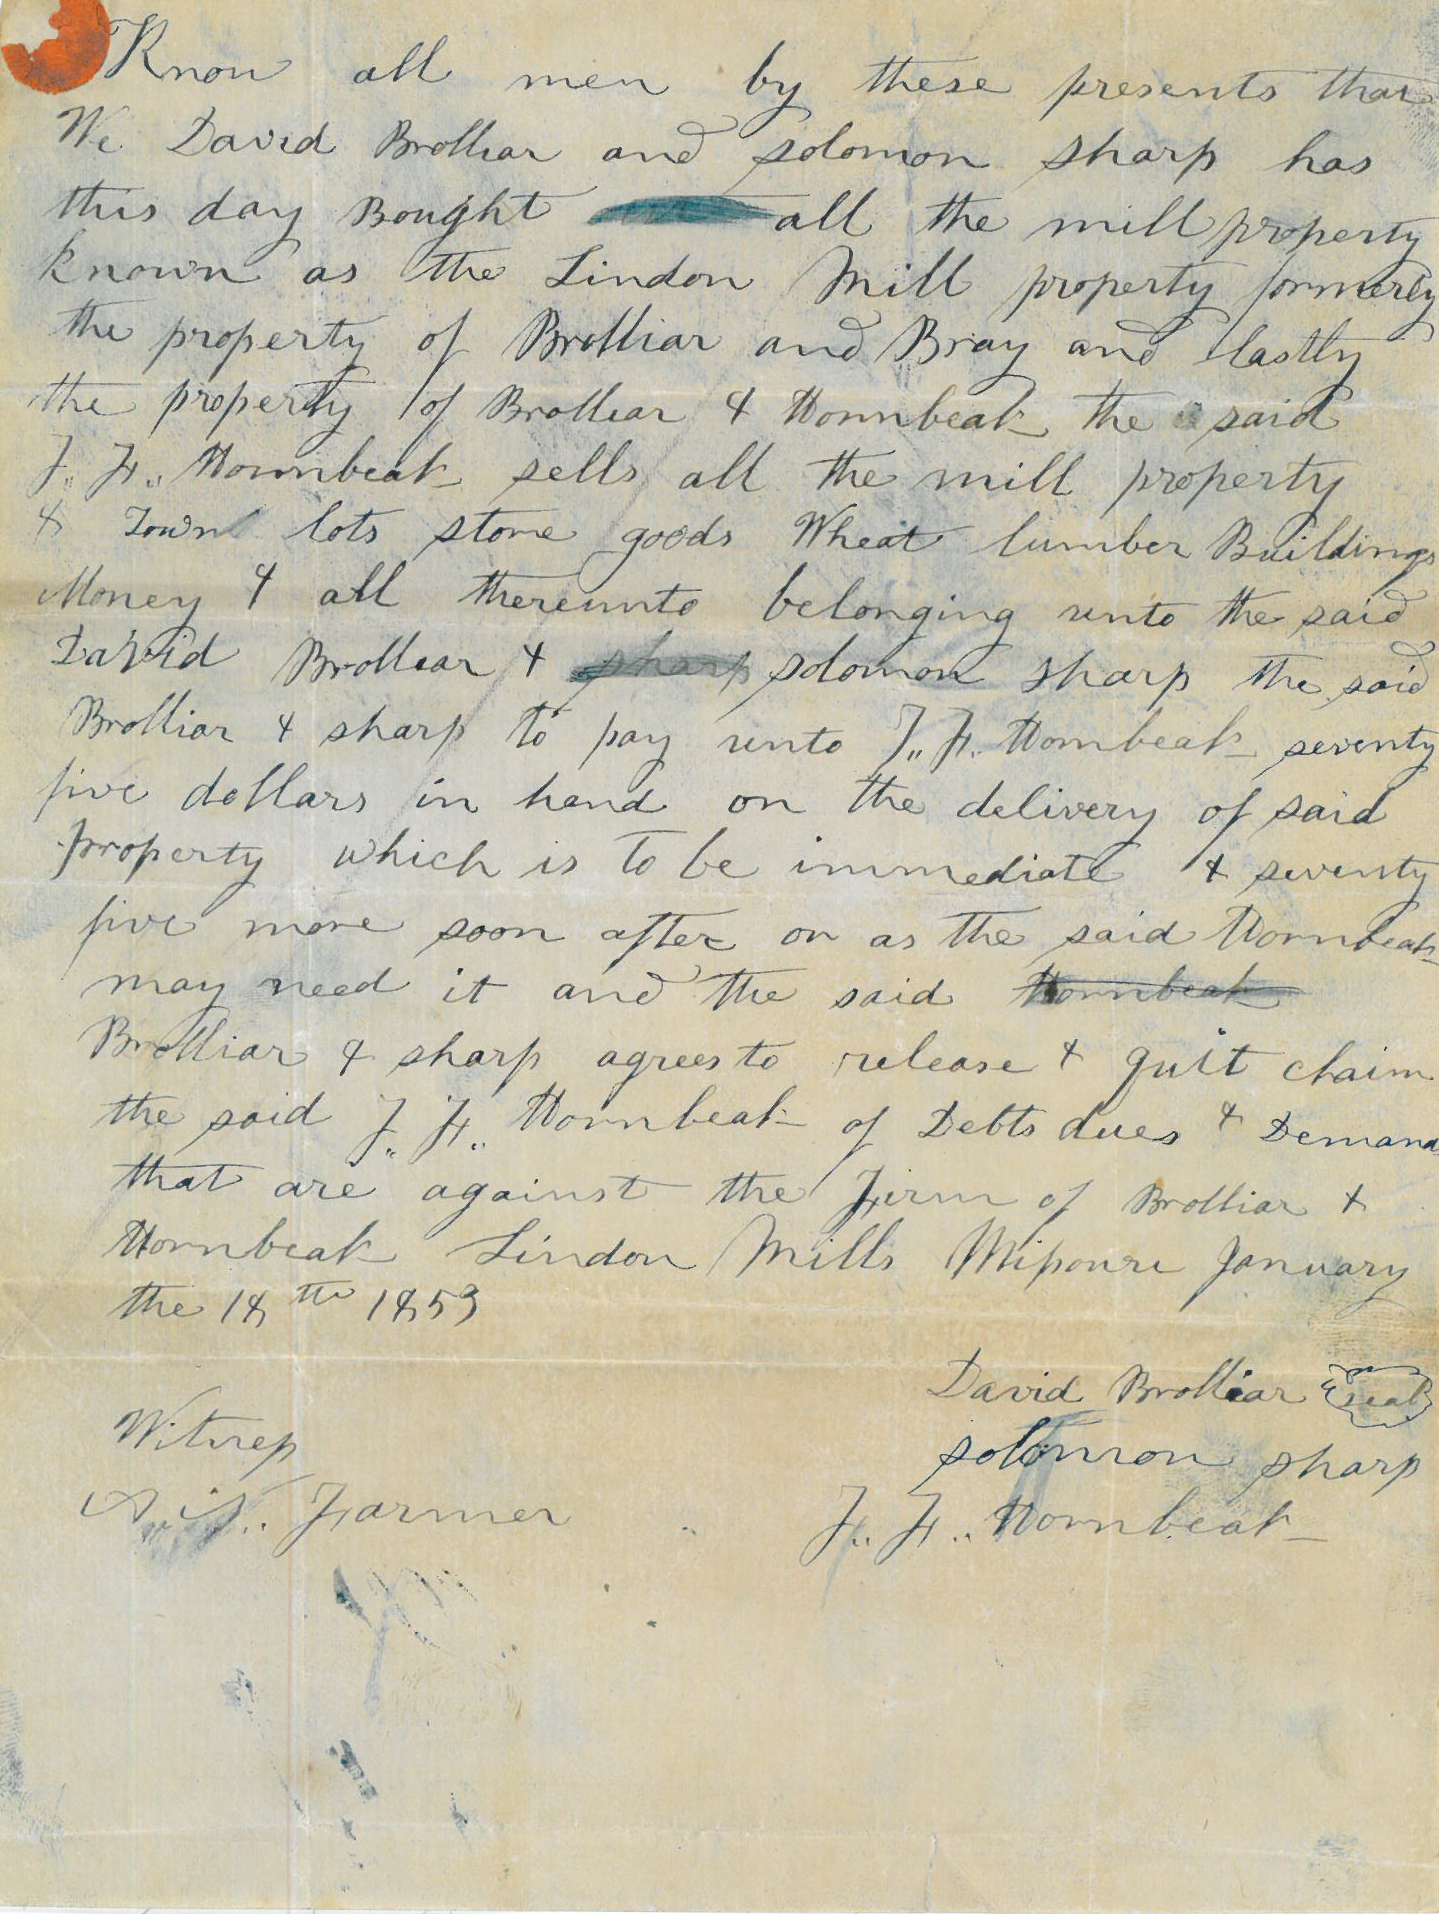 Know all men by these presents that
We David Brolliar and solomon sharp has
this day Bought all the mill property
known as the Lindon Mill property formerly
the property of Brolliar and Bray and lastly
the property of Brolliar & Hornbeak the said
F. F. Hornbeak sells all the mill property
& Town lots store goods Wheat lumber Buildings
Money & all thereunto belonging unto the said
David Brolliar & sharp solomon sharp the said
Brolliar & sharp to pay unto F. F. Hornbeak seventy
five dollars in hand on the delivery of said
property which is to be immediate & seventy
five more soon after or as the said Hornbeak
may need it and the said Hornbeak
Brolliar & sharp agrees to release & quit claim
the said F. F. Hornbeak of Debts dues & Demand
that are against the Firm of Brolliar &
Hornbeak Lindon Mills Missouri January
the 18th 1853
David Brolliar seal
Witness
solomon sharp
Farmer
F. F. Hornbeak